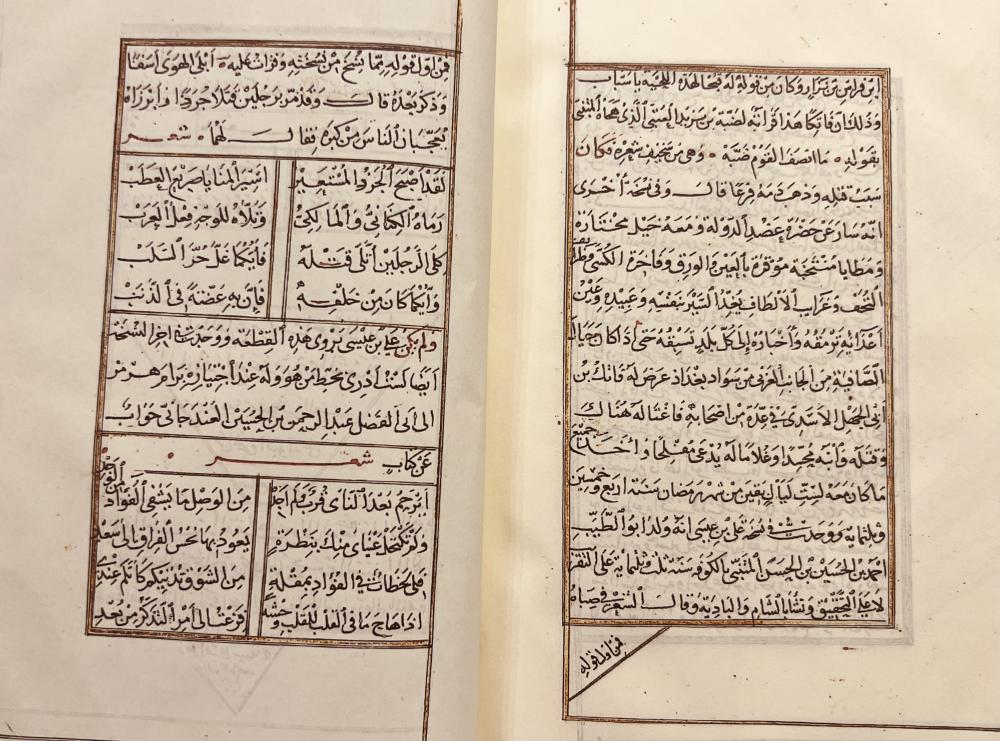 ابن فراس بن بزار وكان من قوله له قبحا لهذه اللحية يا سباب
وذلك ان فاتكا هذا قرابة لضبة بن يزيد العتبي الذي هجاه المتنبي
بقوله ما انصف القوم ضبة وهي من سخيف شعره فكان
سبب قتله وذهب دمه فرغا قال وفي نسخة أخرى
انه سار عن حضرة عضد الدولة ومعه خيل مختارة
ومطايا منتخبة موقرة بالعين والورق وفاخرة الكسى وطرف
التحف وغرايب الالطاف يغذ السير بنفسه وعبيده وعين
أعدائه ترمقه وأخباره إلى كل بلد تسبقه حتى اذا كان بحيال
الصافية من الجانب الغربي من سواد بغداذ عرض له فاتك بن
أبي الجهل الاسدي في عدة من أصحابه فاغتاله هناك
وقتله وابنه محمدا وغلاما له يدعى مفلحا واخذ جميع
ما كان معه لست ليال بقين من شهر رمضان سنة اربع وخمسين
وثلثماية ووجدت في نسخة علي بن عيسى انه ولد ابو الطيب
احمد بن الحسين بن الحسن المتنبي بالكوفة سنة ثلث وثلثماية على التقريب
لا على التحقيق ونشأ بالشام والبادية وقال الشعر في صباه
فمن اول قوله
فمن اول قوله مما نسخ من نسخته وقرات عليه أبلى الهوى أسفا
وذكر بعده قال وقد مر برجلين قتلا جرذا وأبرزاه
يعجبان الناس من كبره فقال لهما شعر
لقد أصبح الجرذ المستغير اسير المنايا صريع العطب
رماه الكناني والعامري وتلاه للوجه فعل العرب
كلى الرجلين أتلى قتله فأيكما غل حر السلب
وأيكما كان من خلفه فإن به عضة في الذنب
ولم يكن علي بن عيسى يروي هذه القطعة ووجدت في اخر النسخة
ايضا لست أدري بخط من هو وله عند اجتيازه برام هرمز
الى ابي الفضل عبد الرحمن بن الحسين جواب
عن كتاب شعر
من الوصل ما يشفي الفؤاد من الوجد
ولم تكتحل عيناي منك بنظرة يعود بها نحس الفراق الى سعد
اذا هاج ما في القلب للقلب وحشة فزعنا الى أمر التذكر من بعد